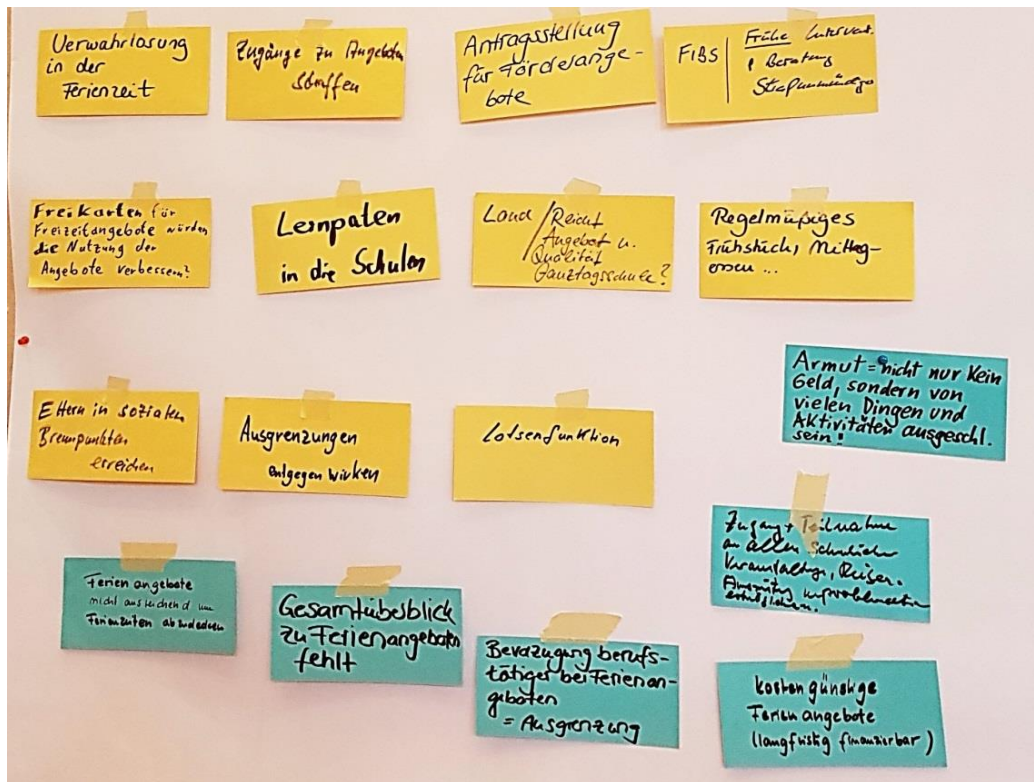 Verwahrlosung
in der
Ferienzeit
Zugänge zu Angeboten
schaffen
Antragsstellung
für Förderange-
bote
FIBS
Frühe Intervent.
& Beratung
Strafunmündige
Freikarten für
Freizeitangebote würden
die Nutzung der
Angebote verbessern?
Lernpaten
in die Schulen
Land / Reicht
Angebot u.
Qualität
Ganztagsschule?
Regelmäßiges
Frühstück, Mittag-
essen ...
Armut = nicht nur Kein
Geld, sondern von
vielen Dingen und
Aktivitäten ausgeschl.
sein!
Eltern in sozialen
Brennpunkten
erreichen
Ausgrenzungen
entgegen wirken
Lotsenfunktion
Zugang + Teilnahme
an allen schulischen
Veranstaltungen, Reisen.
ermöglichen.
Ferienangebote
nicht ausreichend um
Ferienzeiten abzudecken
Gesamtübesblick
zu Ferienangeboten
fehlt
Bevozugung berufs-
tätiger bei Ferienan-
geboten
= Ausgrenzung
kostengünstige
Ferienangebote
(langfristig finanzierbar)